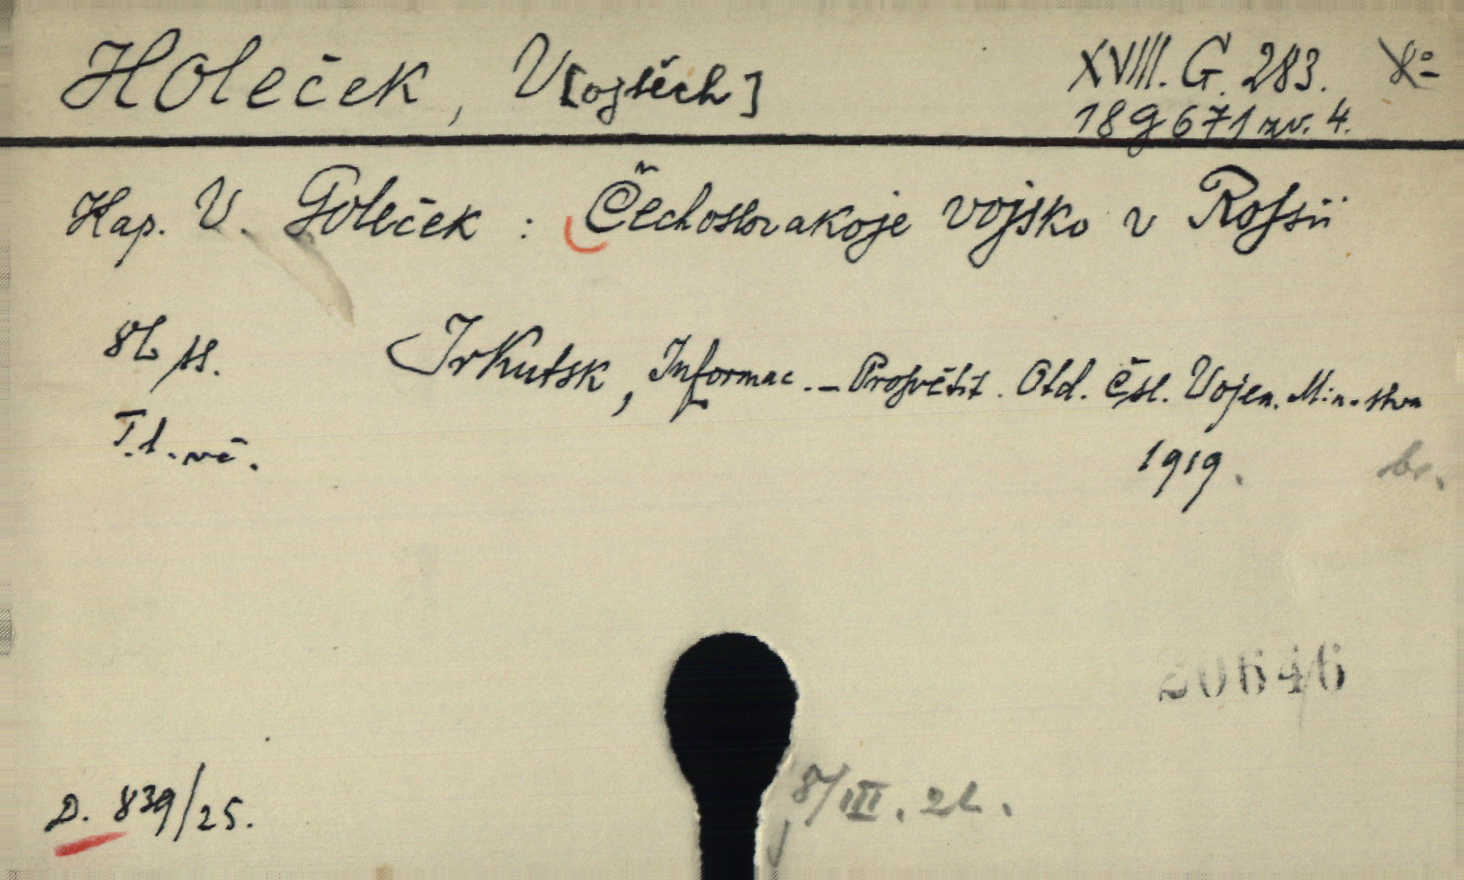 Holeček, V[ojtěch]
XVIII. G. 283. 8°
189671 zv. 4.
Kap. V. Goleček : Čechoslovakoje vojsko v Rossii
86 ss.
Irkutsk, Informac. - Prosvětit. Otd. Čsl. Vojen. Min-stva
T. l. vč.
1919.
br.
20646
D. 839/25.
8/III. 26.